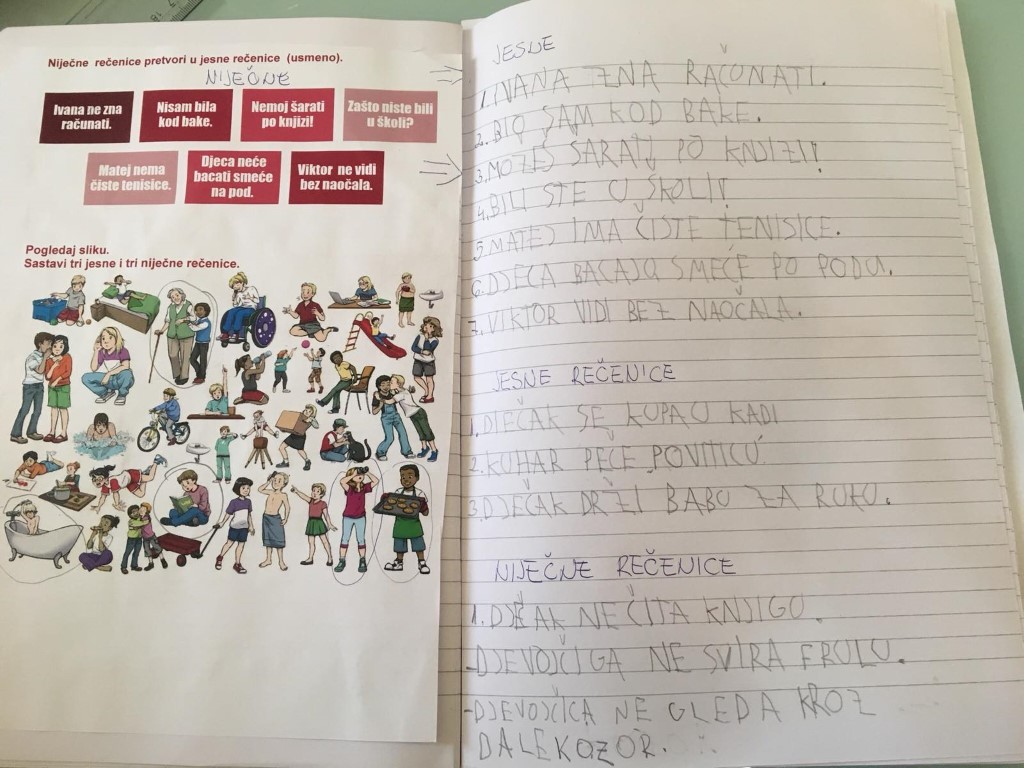 Niječne rečenice pretvori u jesne rečenice (usmeno).
NIJEČNE
Ivana ne zna
računati.
Nisam bila
kod bake.
Nemoj šarati
po knjizi!
Zašto niste bili
u školi?
Matej nema
čiste tenisice.
Djeca neće
bacati smeće
na pod.
Viktor ne vidi
bez naočala.
Pogledaj sliku.
Sastavi tri jesne i tri niječne rečenice.
JESNE
1. IVANA ZNA RAČUNATI.
2. BIO SAM KOD BAKE.
3. MOŽEŠ ŠARATI PO KNJIZI!
4. BILI STE U ŠKOLI!
5. MATEJ IMA ČISTE TENISICE.
6. DJECA BACAJU SMEĆE PO PODU.
7. VIKTOR VIDI BEZ NAOČALA.
JESNE REČENICE
1. DJEČAK SE KUPA U KADI
2. KUHAR PEČE POVITICU
3. DJEČAK DRŽI BABU ZA RUKU.
NIJEČNE REČENICE
1. DJEČAK NE ČITA KNJIGU.
-DJEVOJČIGA NE SVIRA FRULU.
-DJEVOJČICA NE GLEDA KROZ
DALEKOZOR.